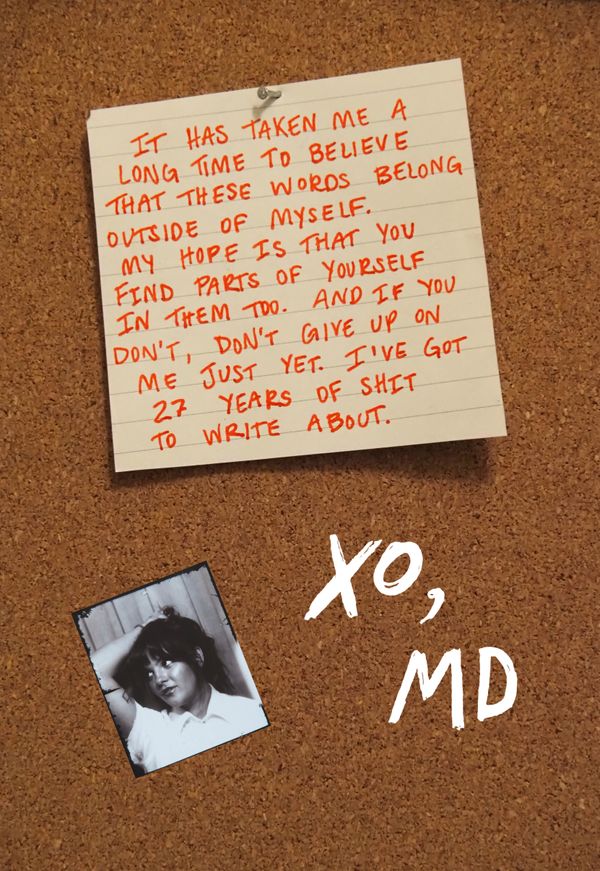 IT HAS TAKEN ME A
LONG TIME TO BELIEVE
THAT THESE WORDS BELONG
OUTSIDE OF MYSELF.
MY HOPE IS THAT YOU
FIND PARTS OF YOURSELF
IN THEM TOO. AND IF YOU
DON'T, DON'T GIVE UP ON
ME JUST YET. I'VE GOT
27 YEARS OF SHIT
TO WRITE ABOUT.
XO,
MD